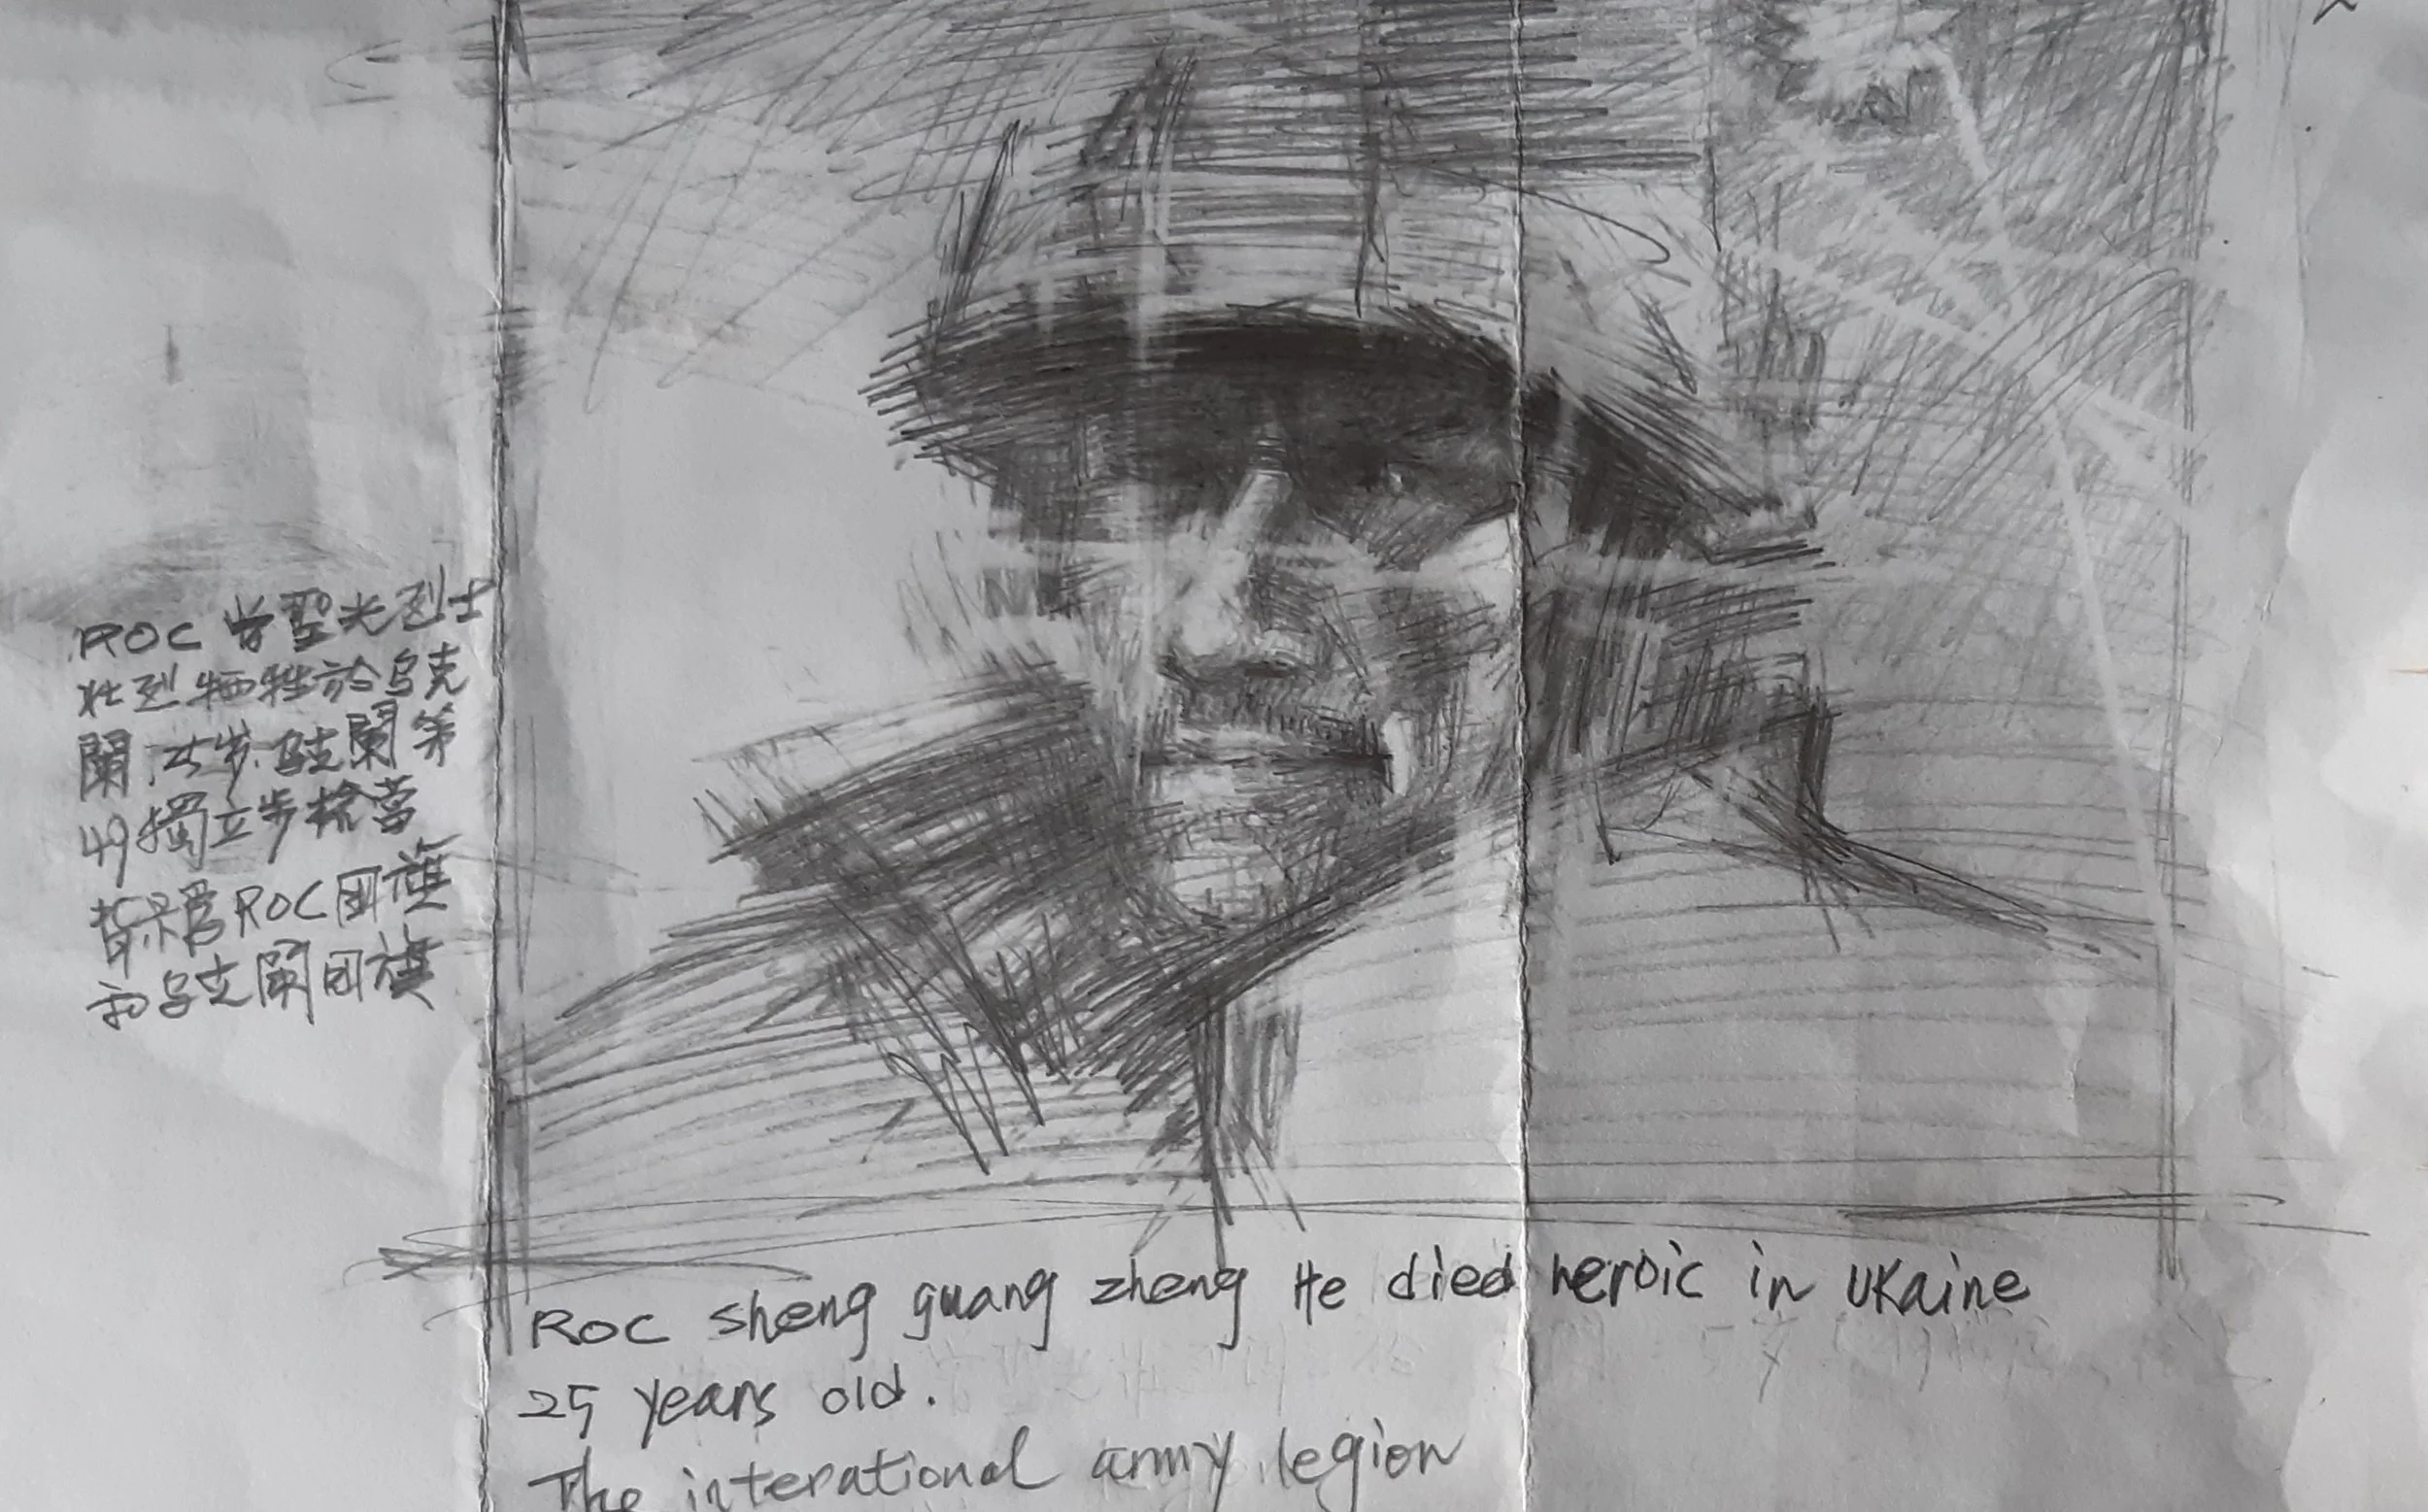 ROC 曾聖光烈士
壯烈犧牲於烏克
蘭.25岁.烏克蘭第
49獨立步槍营
ROC国旗
和烏克蘭国旗
ROC sheng guang zheng He died heroic in UKaine
25 years old.
The interational army legion